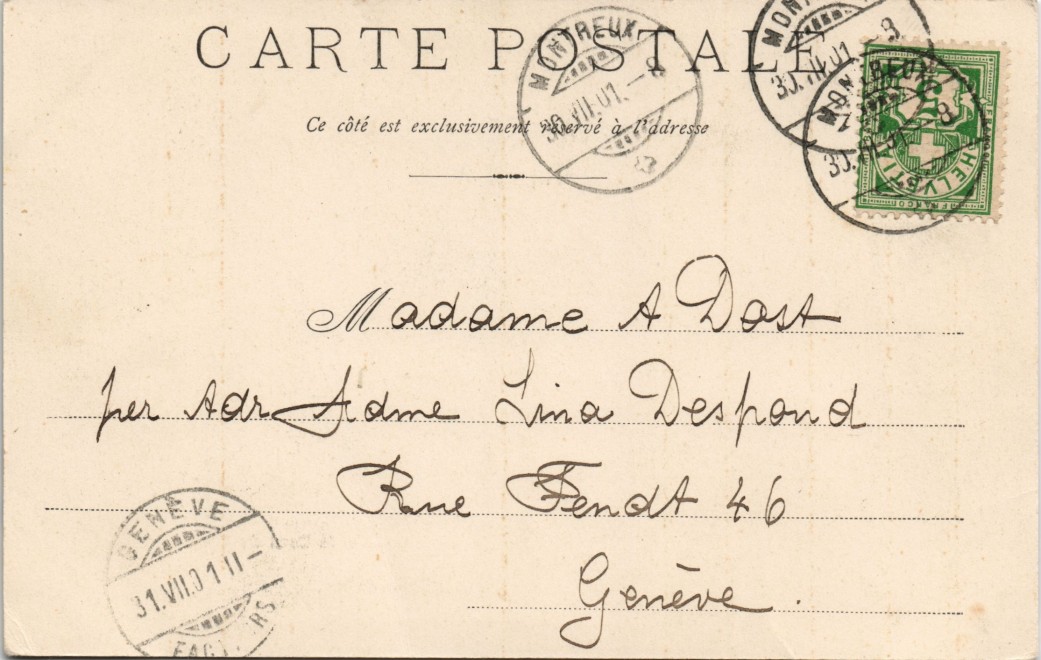 CARTE POSTALE
Ce côté est exclusivement réservé à l'adresse
MONTREUX
30.VII.01.-8
MONTREUX
30.VII.01.-8
HELVETIA
FRANCO
Madame A Dost
per Adr Mdme Lina Despond
Rue Fendt 46
Genève.
GENÈVE
31.VII.01 11-
FACT. RS